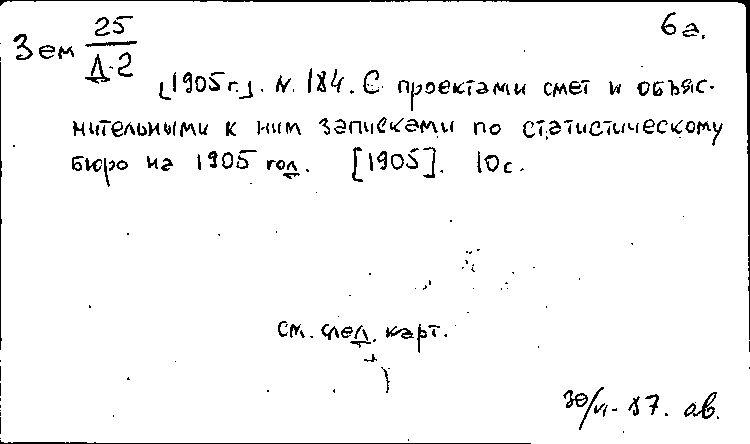 6а.
Зем 25/Д-2
[1905 г.]. N. 184. С проектами смет и объяс-
нительными к ним записками по статистическому
бюро на 1905 год. [1905]. 10 с.
см. след. карт.
30/VI-87. ав.